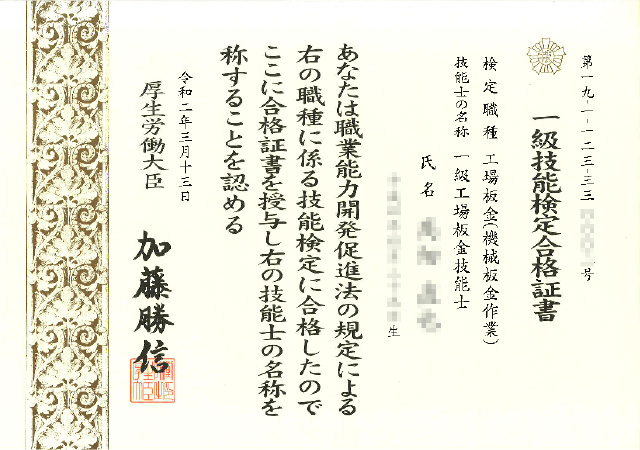 第一九-一-一二三-三三 号
一級技能検定合格証書
検定職種 工場板金(機械板金作業)
技能士の名称 一級工場板金技能士
氏名
生
あなたは職業能力開発促進法の規定による
右の職種に係る技能検定に合格したので
ここに合格証書を授与し右の技能士の名称を
称することを認める
令和二年三月十三日
厚生労働大臣
加藤勝信